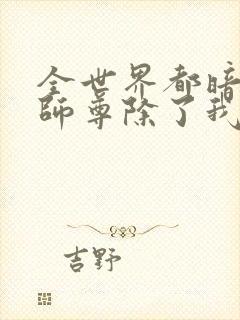 全世界都暗
师尊除了我
吉野